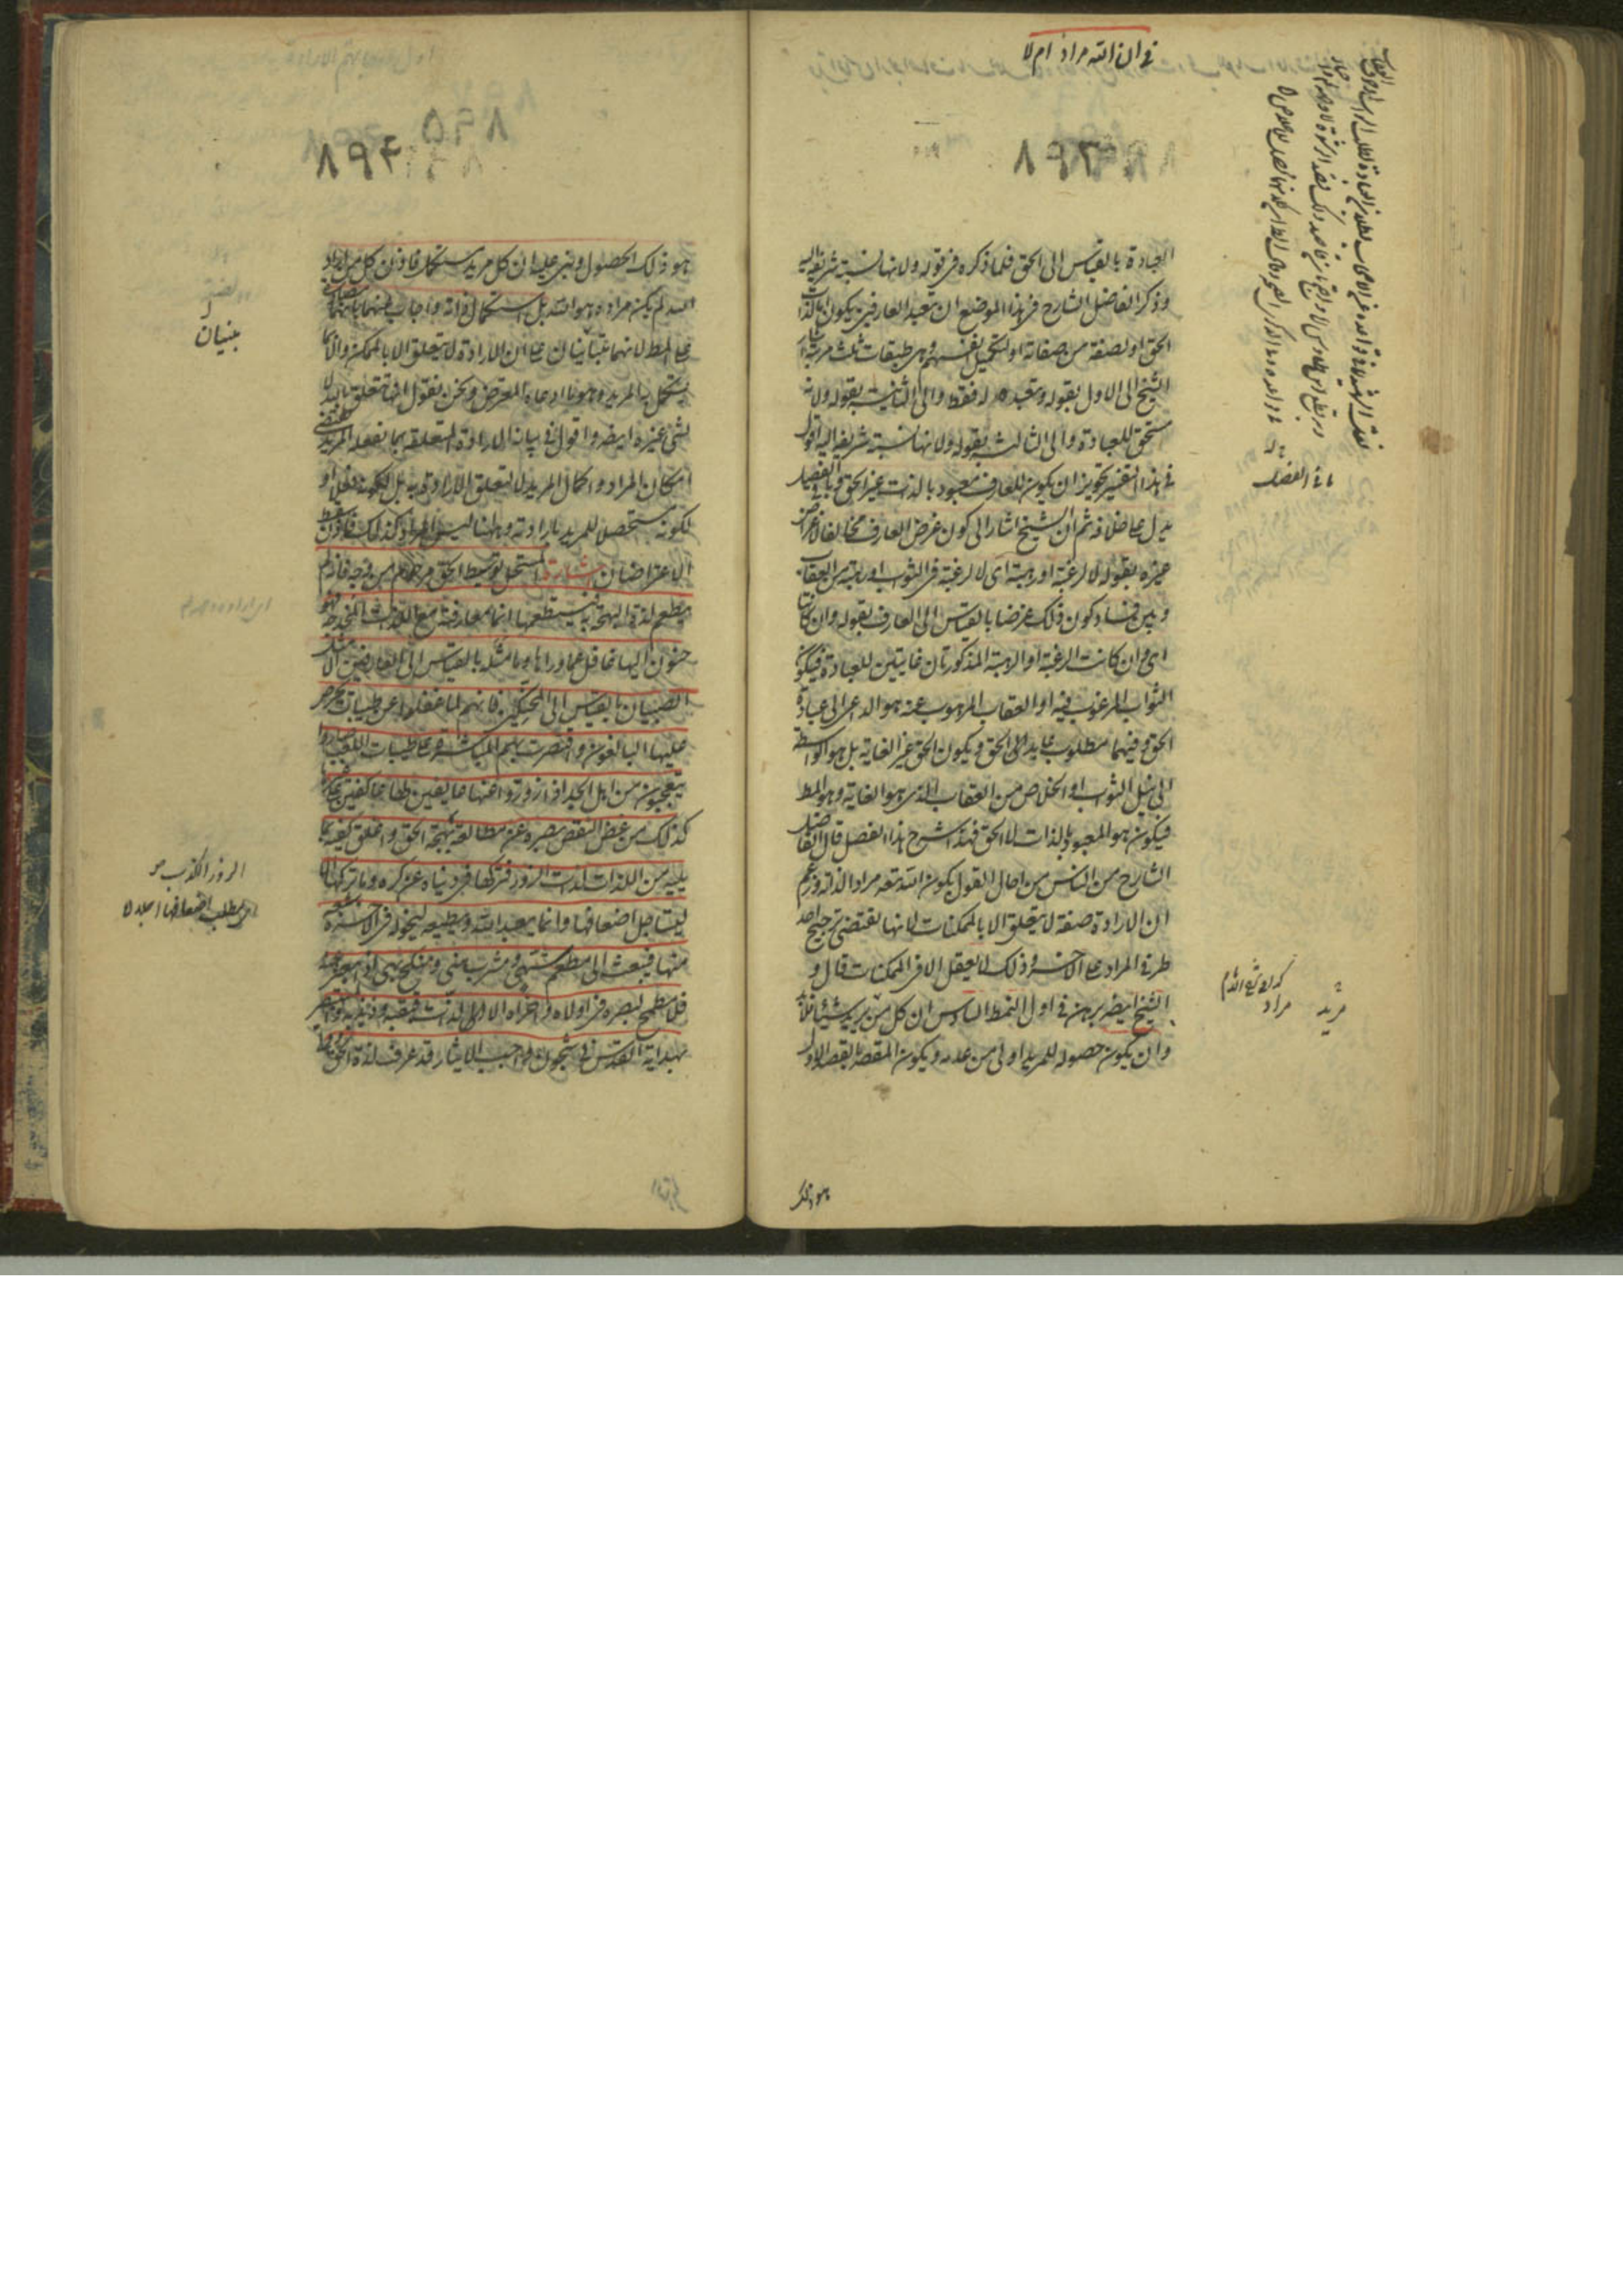 في ان الله مراد ام لا
٨٩٣
العبادة بالقياس الى الحق فلما ذكره في قوله ولانها نسبة شريفة اليه
وذكر الفاضل الشارح في هذا الموضع ان تعبد العارفين يكون لذات
الحق او لصفة من صفاته او لتكميل انفسهم وهي طبقات ثلث مرتبة اشار
الشيخ الى الاول بقوله وتعبده له فقط والى الثانية بقوله ولانه
مستحق للعبادة والى الثالثة بقوله ولانها نسبة شريفة اليه اقول
في هذا التفسير تجويز ان يكون للعارف معبود بالذات غير الحق وباقي الفصل
يدل على خلافه ثم ان الشيخ اشار الى كون غرض العارف مخالفا لاغراض
غيره بقوله لا لرغبة او رهبة اى لا لرغبة في الثواب او رهبة من العقاب
وبين فساد كون ذلك غرضا بالقياس الى العارف بقوله وان كانتا
اى وان كانت الرغبة او الرهبة المذكورتان غايتين للعبادة فيكون
الثواب المرغوب فيه او العقاب المرهوب عنه هو الداعى الى عبادة
الحق وفيهما مطلوب عابدى الحق ويكون الحق غير الغاية بل هو الواسطة
الى نيل الثواب او الخلاص من العقاب الذى هو الغاية وهو المط
فيكون هو المعبود بالذات لا الحق فهذا شرح هذا الفصل قال الفاضل
الشارح من الناس من احال القول بكون الله تعه مرادا لذاته وزعم
ان الارادة صفة لا يتعلق الا بالممكنات لانها تقتضى ترجيح احد
طرفى المراد على الاخر وذلك لا يعقل الا في الممكنات قال و
الشيخ ايضه برهن في اول النمط السادس ان كل من يريد شيئا فلابد
وان يكون حصوله للمريد اولى من عدمه ويكون المقصد بالقصد الاول
مريد
مراد
هو ذلك
٨٩٤
٨٩٥
هو ذلك الحصول وبنى عليه ان كل مريد مستكمل فاذن كل من اراد
الله لم يكن مراده هو الله بل استكمال ذاته واجاب عنهما بانهما
على المط لانهما مبنيتان على ان الارادة لا تتعلق الا بالممكن والا بما
يستكمل به المريد وهو ما ادعاه المعترض ونحن نقول انها تتعلق بالله لا
لشئ غيره ايضه واقول في بيانه الارادة المتعلقة بما يفعله المريد تقتضى
امكان المراد واكمال المريد لا لتعلق الارادة به بل لكونه فعلا او
لكونه مستحصلا للمريد بارادته وههنا ليس المراد كذلك فاذن سقط
الاعتراضان اشارة المستحل توسيط الحق مرحوم من وجه فانه لم
يطعم لذة البهجة به فيستطعمها انما معارفته مع اللذات المخدجة فهو
حنون اليها غافل عما وراءها وما مثله بالقياس الى العارفين الا مثل
الصبيان بالقياس الى المحنكين فانهم لما غفلوا عن طيبات يحرص
عليها البالغون واقتصرت بهم المباشرة على طيبات اللعب صاروا
يتعجبون من اهل الجد اذا ازوروا عنها عايفين لها عاكفين على غيرها
كذلك من غض النقص بصره عن مطالعة بهجة الحق واعلق كفيه بما
يليه من اللذات لذات الزور فتركها في دنياه عن كره وما تركها الا
ليستاجل اضعافها وانما يعبد الله ويطيعه ليخوله في الاخرة شبعه
منها فيبعث الى مطعم شهى ومشرب هنى ومنكح بهى اذا بعثر عنه
فلا مطمح لبصره في اولاه واخراه الا الى لذات قبقبه وذبذبه والمستبصر
بهداية القدس في شجون واجب الايثار قد عرف لذة الحق
مبنيتان
الزور الكذب
اى يطلب اضعافها اجلا